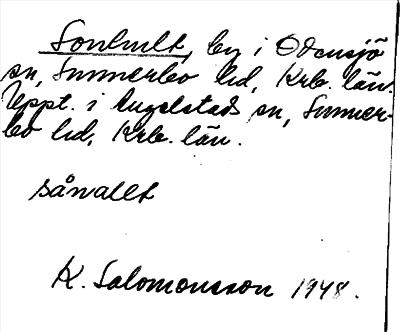 Sonhult, by i Odensjö
sn, Sunnerbo hd, Krb. län.
Uppt. i Angelstads sn, Sunner-
bo hd, Krb. län.
sånalt
K. Salomonsson 1948.